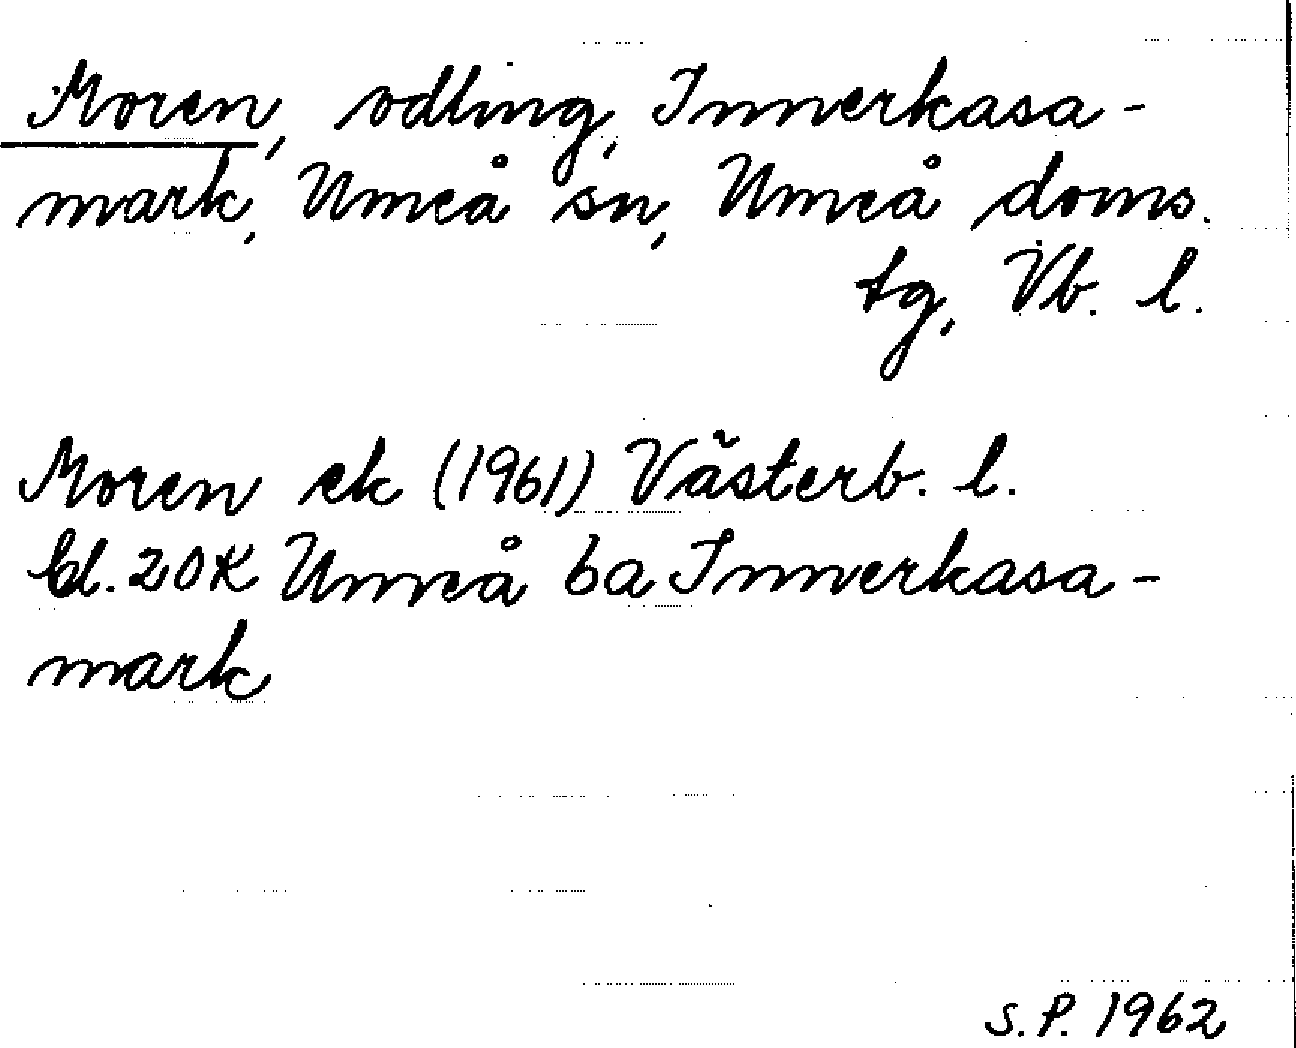 Moren, odling, Innerkasa-
mark, Umeå sn, Umeå doms.
tg, Vb. l.
Moren ek (1961) Västerb. l.
bl. 20K Umeå 6a Innerkasa-
mark
S.P. 1962